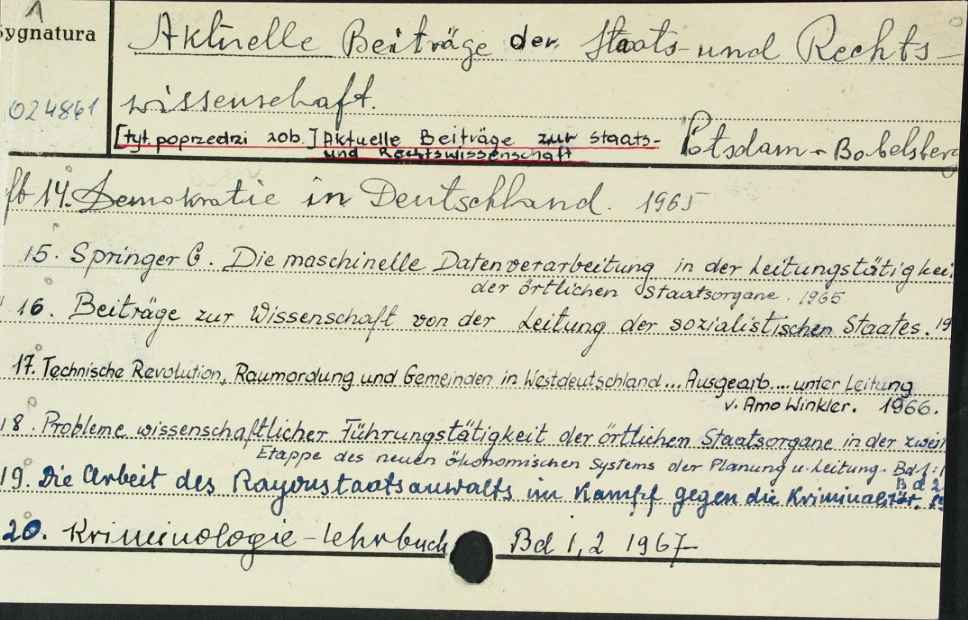 A
Sygnatura
024861
Aktuelle Beiträge der Staats- und Rechts-
wissenschaft.
[tyt. poprzedzi zob.] Aktuelle Beiträge zur Staats-
und Rechtswissenschaft
Potsdam-Babelsberg
14. Demokratie in Deutschland. 1965
15. Springer G. Die maschinelle Datenverarbeitung in der Leitungstätigkei
der örtlichen Staatsorgane. 1965
16. Beiträge zur Wissenschaft von der Leitung der sozialistischen Staates. 19
17. Technische Revolution, Raumordung und Gemeinden in Westdeutschland... Ausgearb.... unter Leitung
v. Arno Winkler. 1966.
18. Probleme wissenschaftlicher Führungstätigkeit der örtlichen Staatsorgane in der zweit
Etappe des neuen ökonomischen Systems der Planung u. Leitung. Bd 1:
Bd 2
19. Die Arbeit des Rayonstaatsanwalts im Kampf gegen die Kriminalität.
20. Kriminologie-Lehrbuch Bd 1,2 1967